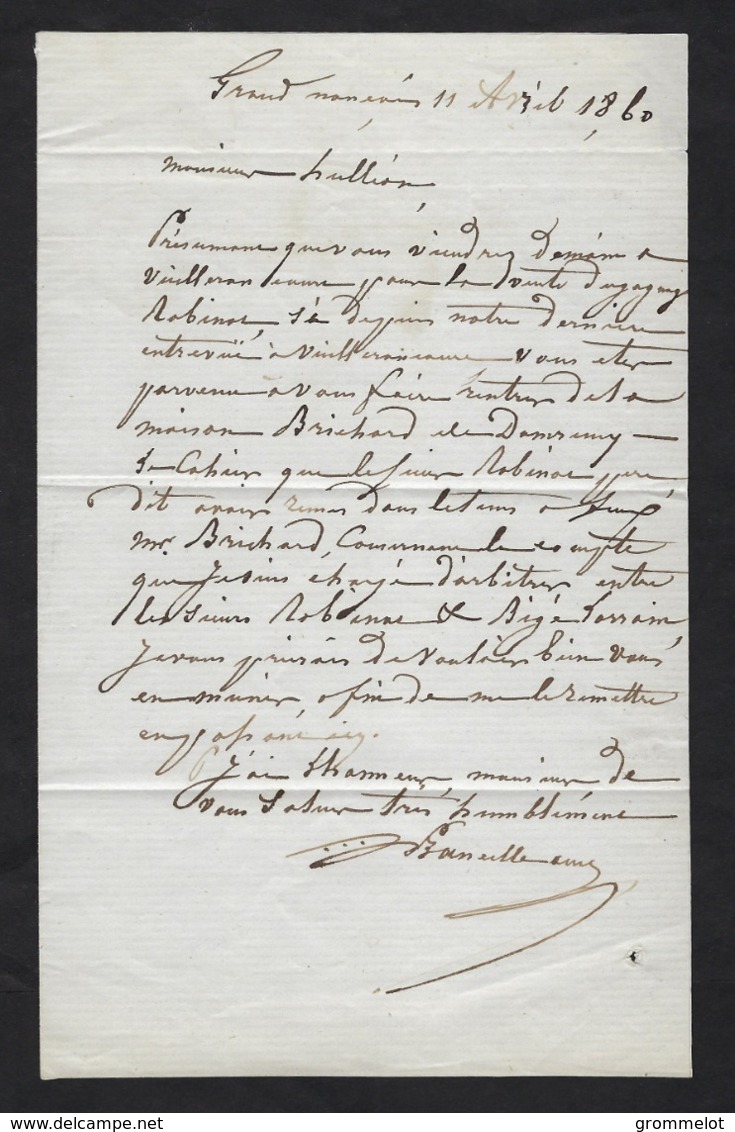 Grand 11 Avril 1860
monsieur hullion
Présumant que vous viendrez demain a
pour la vente
Robinot, sé depuis notre derniere
entrevuë à vous etes
parvenu a vous faire rentrer de la
maison Brichard de Domremy
le Cahier que le sieur Robinot pere
dit avoir remis dans le tems a feu
Mr. Brichard, Concernant le compte
que Je suis chargé d'arbitrer entre
les sieurs Robinot & Bigé Lorrain,
Je vous prierais de vouloir bien vous
en munir, afin de me le remettre
en passant icy.
J'ai l'honneur, monsieur de
vous saluer très humblément
www.delcampe.net
grommelot